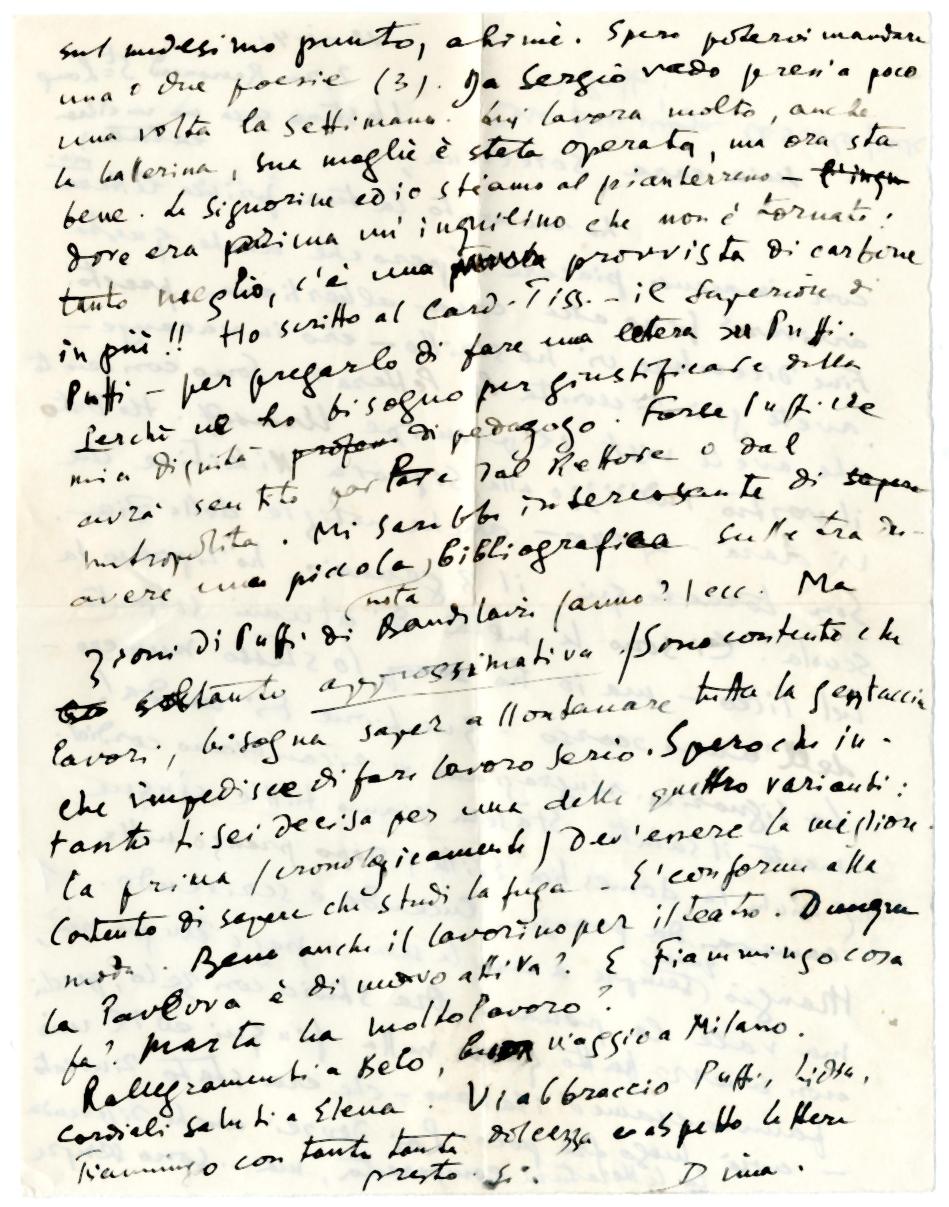 sul medesimo punto, ahimè. Spero potervi mandare
una o due poesie (3). Da Sergio vado pres'a poco
una volta la settimana. Lui lavora molto, anche
la ballerina, sua moglie è stata operata, ma ora sta
bene. Le Signorine ed io stiamo al pianterreno –
dove era prima un inquilino che non è tornato:
tanto meglio, c'è una provvista di carbone
in più!! Ho scritto al Card. Tiss. – il Superior di
Puffi – per pregarlo di fare una letera su Puffi.
Perchè ne ho bisogno per giustificare della
mia dignità di pedagogo. Forse Puffi ne
avrà sentito parlare dal Rettore o dal
metropolita. Mi sarebbe interessante di
avere una piccola bibliografica sulle tradu-
zioni di Puffi di nota Baudilaire (anno?) ecc. Ma
soltanto approssimativa. / Sono contento che
lavori, bisogna saper allontanare tutta la gentaccia
che impedisce di fare lavoro serio. Spero che in-
tanto ti sei decisa per una delle quattro varianti:
la prima (cronologicamente) dev'essere la migliore.
Contento di sapere che studi la fuga – E' conforme alla
moda. Bene anche il lavorino per il teatro. Dunque
la è di nuovo attiva? E Fiammingo cosa
fa? Marta ha molto lavoro?
Rallegramenti a Belo, buon viaggio a Milano.
cordiali saluti a Elena. Vi abbraccio Puffi, Lidia,
Fiammingo con tanta tanta dolcezza e aspetto lettere
presto. Si. Dima.